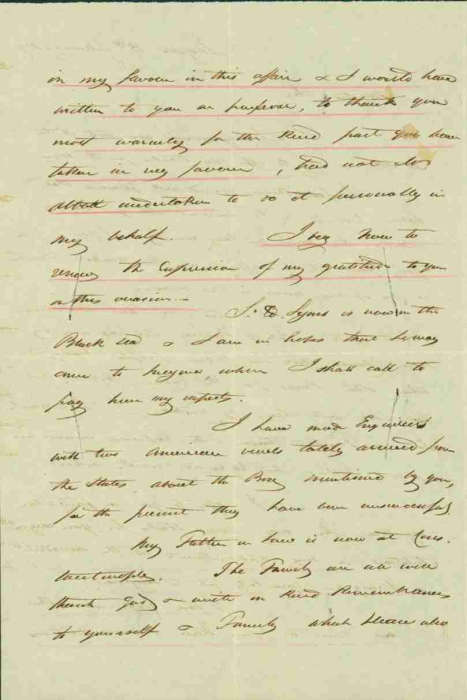 in my favour in this affair & I would have
written to you on purpose, to thank you
most warmly for the kind part you have
taken in my favour, had not Mr
Abbott undertaken to do it personally in
my behalf. I beg now to
renew the Expression of my gratitude to you
on this occasion.
Sr. E. Lyons is now in the
Black Sea & I am in hopes that he may
come to Smyrna, when I shall call to
pay him my respects.
I have made Enquiries
with two American vessels lately arrived from
the States about the Box mentioned by you,
for the present they have been unsuccessful
My Father in law is now at Cons.
tantinople. The Family are all well
thank God & unite in kind Remembrances
to yourself & Family which please also